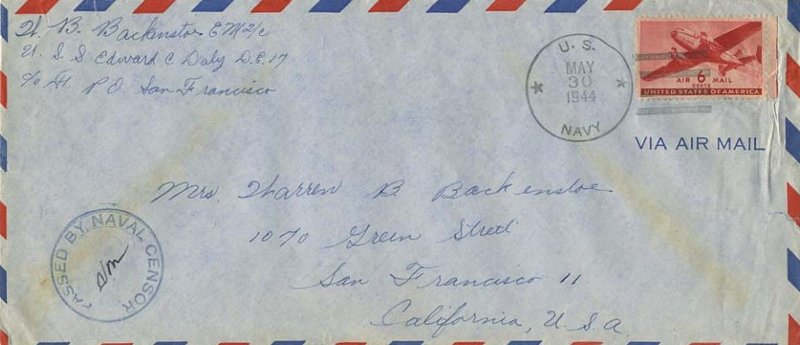 W. B. Backenstoe EM2/c
U. S. S. Edward C Daly D.E. 17
c/o Flt P.O. San Francisco
U. S.
MAY
30
1944
NAVY
AIR 6 MAIL
CENTS
UNITED STATES OF AMERICA
VIA AIR MAIL
Mrs. Warren B. Backenstoe
1070 Green Street
San Francisco 11
California, U.S.A.
PASSED BY NAVAL CENSOR